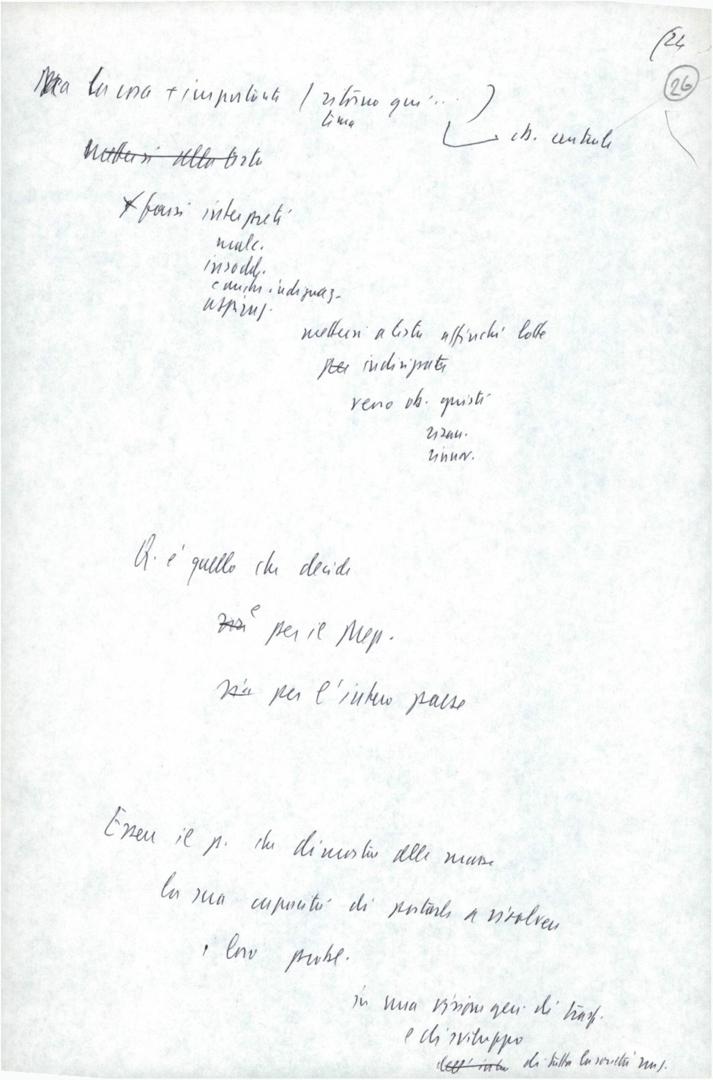 (24
26
Ma la cosa + importante (ritorno qui...)
tema
ob. centrale
Mettersi alla testa
farsi interpreti
malc.
insodd.
e anche indignaz.
aspiraz.
mettersi a testa affinché lotte
per indirizzate
verso ob. giusti
risan.
rinnov.
Q. è quello che decide
sia e per il Mep.
sia per l'intero paese
Essere il p. che dimostra alle masse
la sua capacità di portarle a risolvere
i loro probl.
in una visione gen. di trasf.
e di sviluppo
di tutta la società naz.